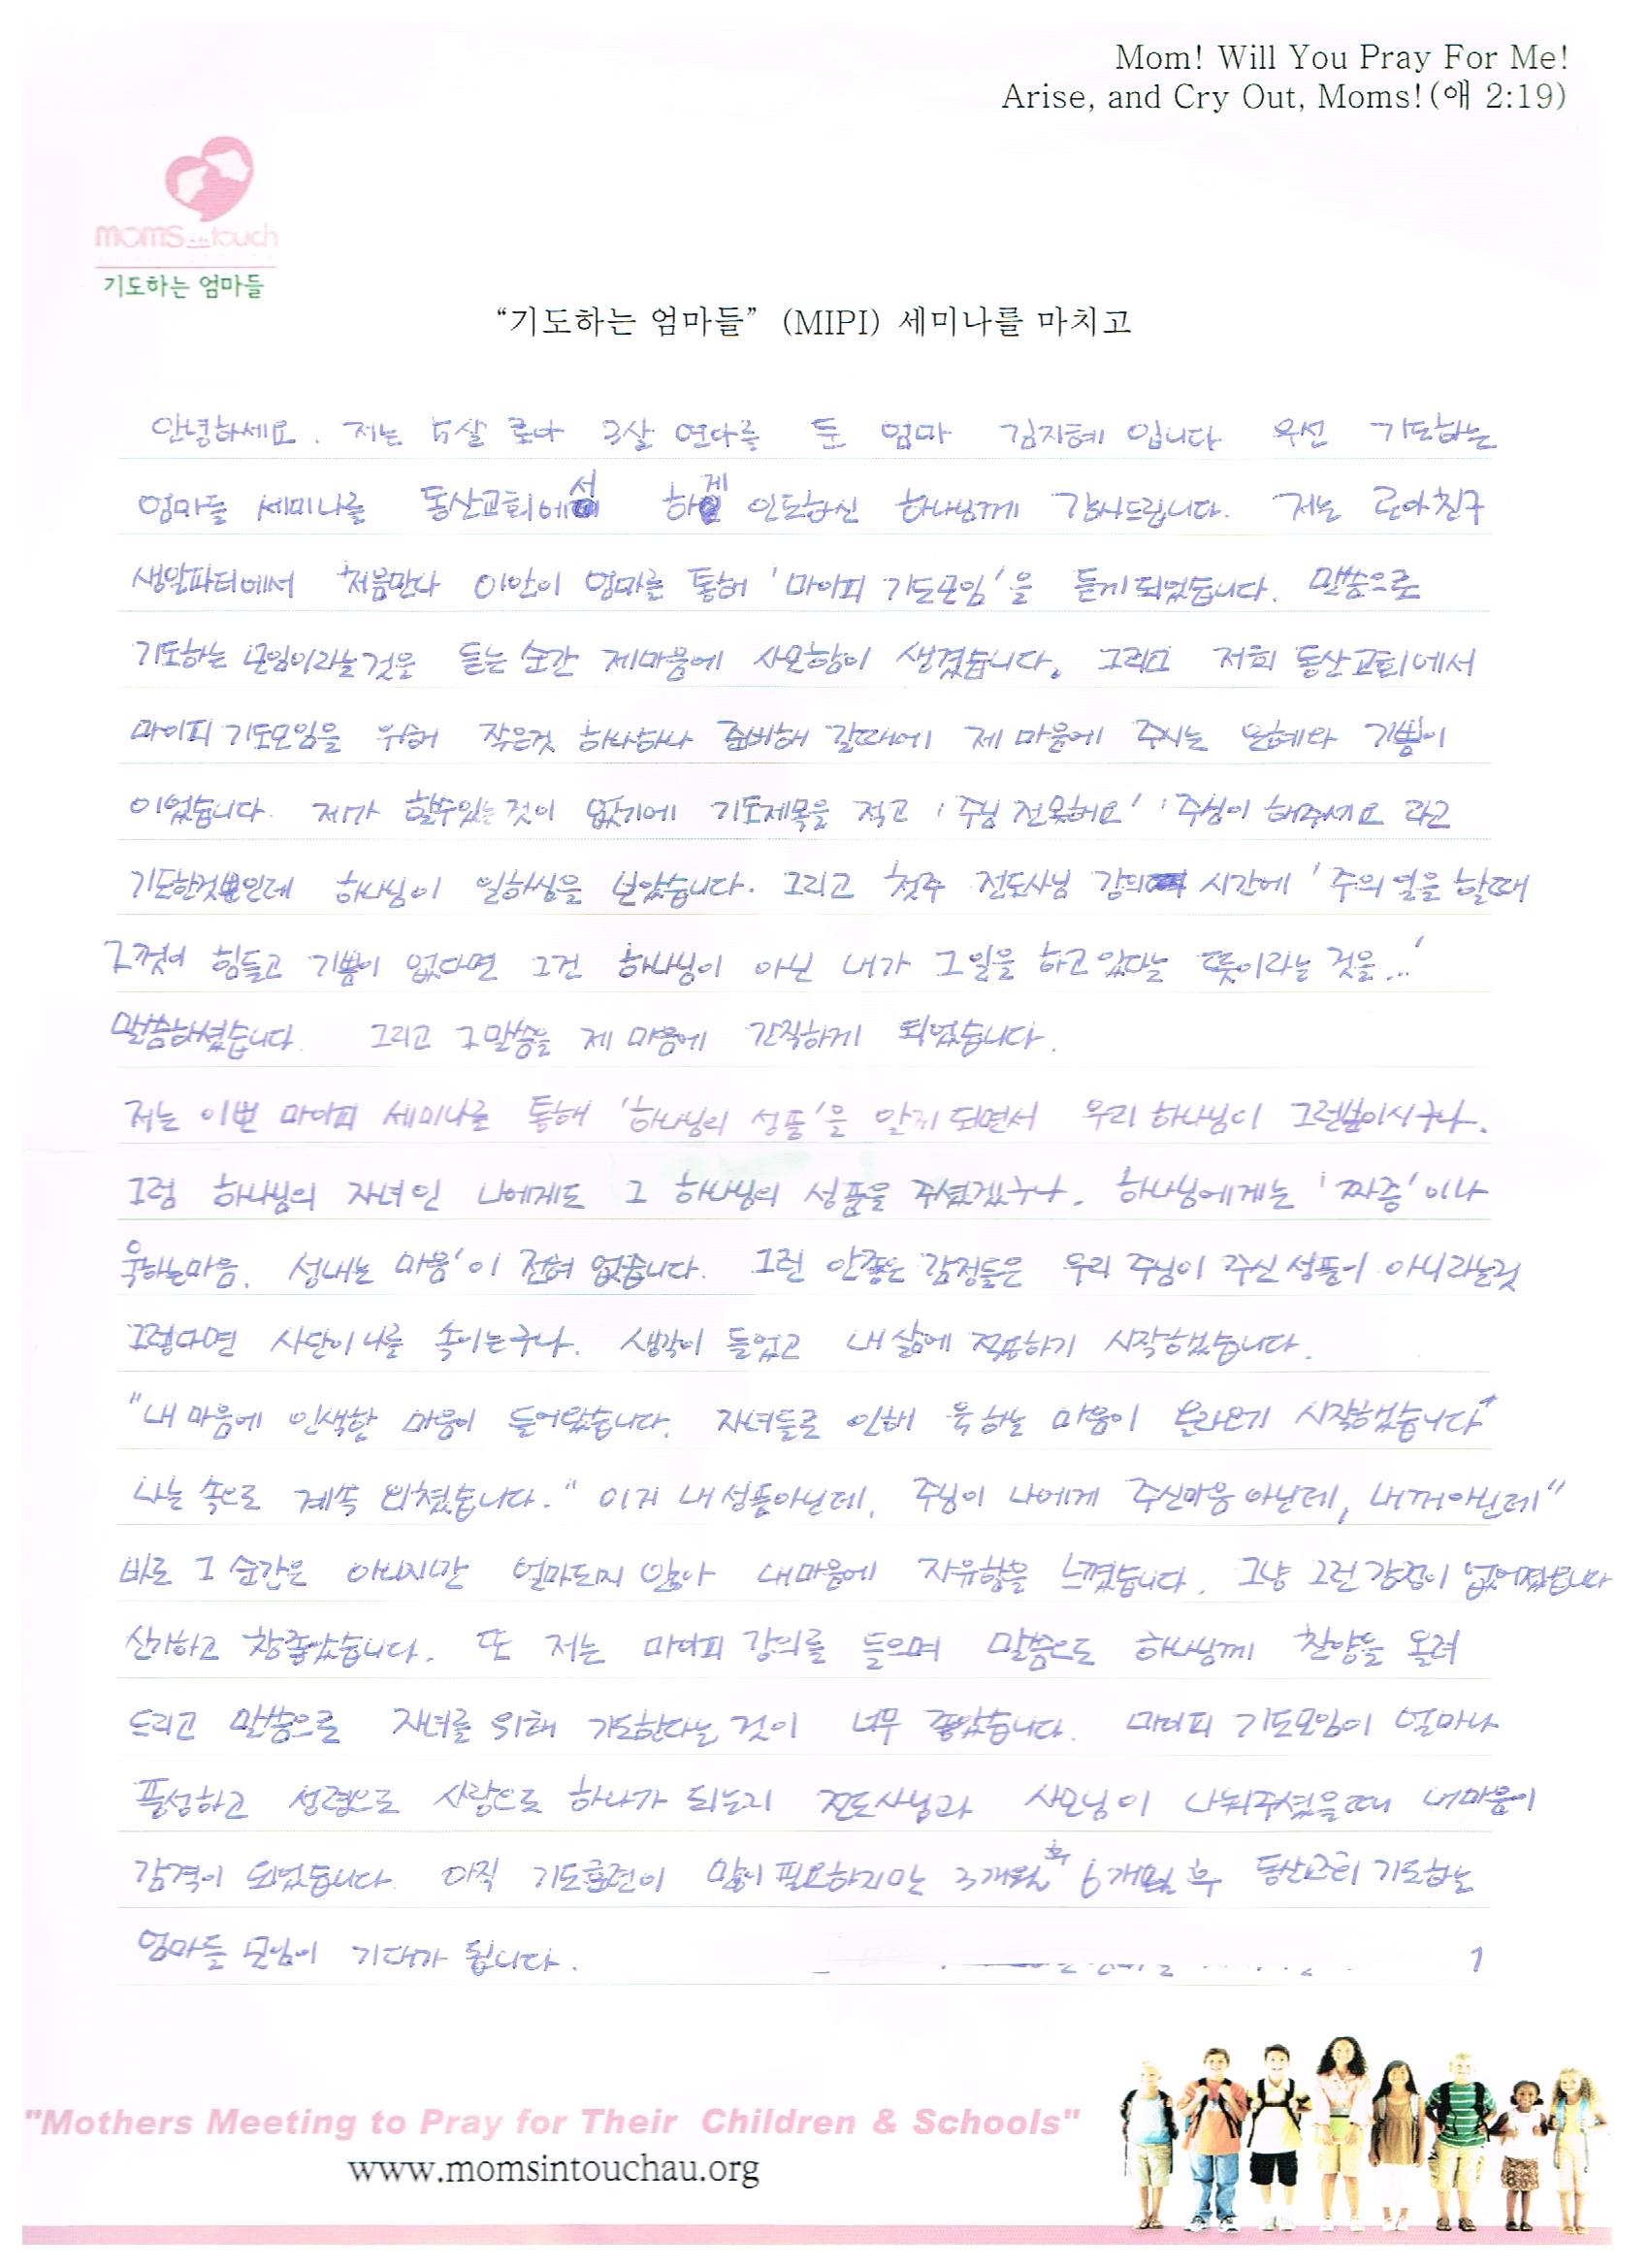 Mom! Will You Pray For Me!
Arise, and Cry Out, Moms!(애 2:19)
moms in touch
기도하는 엄마들
“기도하는 엄마들” (MIPI) 세미나를 마치고
안녕하세요. 저는 5살 로아 3살 연다를 둔 엄마 김지혜 입니다 우선 기도하는
엄마들 세미나를 동산교회에서 하게 인도하신 하나님께 감사드립니다. 저는 로아친구
생일파티에서 처음만나 이안이 엄마를 통해 '마이피 기도모임'을 듣게되었습니다. 말씀으로
기도하는 모임이라는것을 듣는 순간 제마음에 사모함이 생겼습니다. 그리고 저희 동산교회에서
마이피 기도모임을 위해 작은것 하나하나 준비해 갈때에 제 마음에 주시는 은혜와 기쁨이
이었습니다. 제가 할수있는 것이 없기에 기도제목을 적고 '주님 전못해요' '주님이 해주세요 라고
기도한것뿐인데 하나님이 일하심을 보았습니다. 그리고 첫주 전도사님 강의 시간에 '주의 일을 할때
그것이 힘들고 기쁨이 없다면 그건 하나님이 아닌 내가 그일을 하고있다는 뜻이라는 것을...'
말씀하셨습니다. 그리고 그말씀을 제 마음에 간직하게 되었습니다.
저는 이번 마이피 세미나를 통해 '하나님의 성품'을 알게 되면서 우리 하나님이 그런분이시구나.
그럼 하나님의 자녀인 나에게도 그 하나님의 성품을 주셨겠구나. 하나님에게는 '짜증'이나
욱하는마음. 성내는 마음'이 전혀 없습니다. 그런 안좋은 감정들은 우리 주님이 주신성품이 아니라는것
그렇다면 사단이나를 속이는구나. 생각이 들었고 내삶에 적용하기 시작했습니다.
"내 마음에 인색한 마음이 들어왔습니다. 자녀들로 인해 욱하는 마음이 올라오기 시작했습니다"
나는 속으로 계속 외쳤습니다. "이거 내성품아닌데, 주님이 나에게 주신마음 아닌데, 내꺼아닌데"
바로 그 순간은 아니지만 얼마되지 않아 내마음에 자유함을 느꼈습니다. 그냥 그런 감정이 없어졌습니다
신기하고 참좋았습니다. 또 저는 마이피 강의를 들으며 말씀으로 하나님께 찬양을 올려
드리고 말씀으로 자녀를 위해 기도한다는 것이 너무 좋았습니다. 마이피 기도모임이 얼마나
풍성하고 성령으로 사랑으로 하나가 되는지 전도사님과 사모님이 나눠주셨을때 내마음이
감격이 되었습니다. 아직 기도훈련이 많이 필요하지만 3개월후 6개월 후 동산교회 기도하는
엄마들 모임이 기대가 됩니다.
1
"Mothers Meeting to Pray for Their Children & Schools"
www.momsintouchau.org